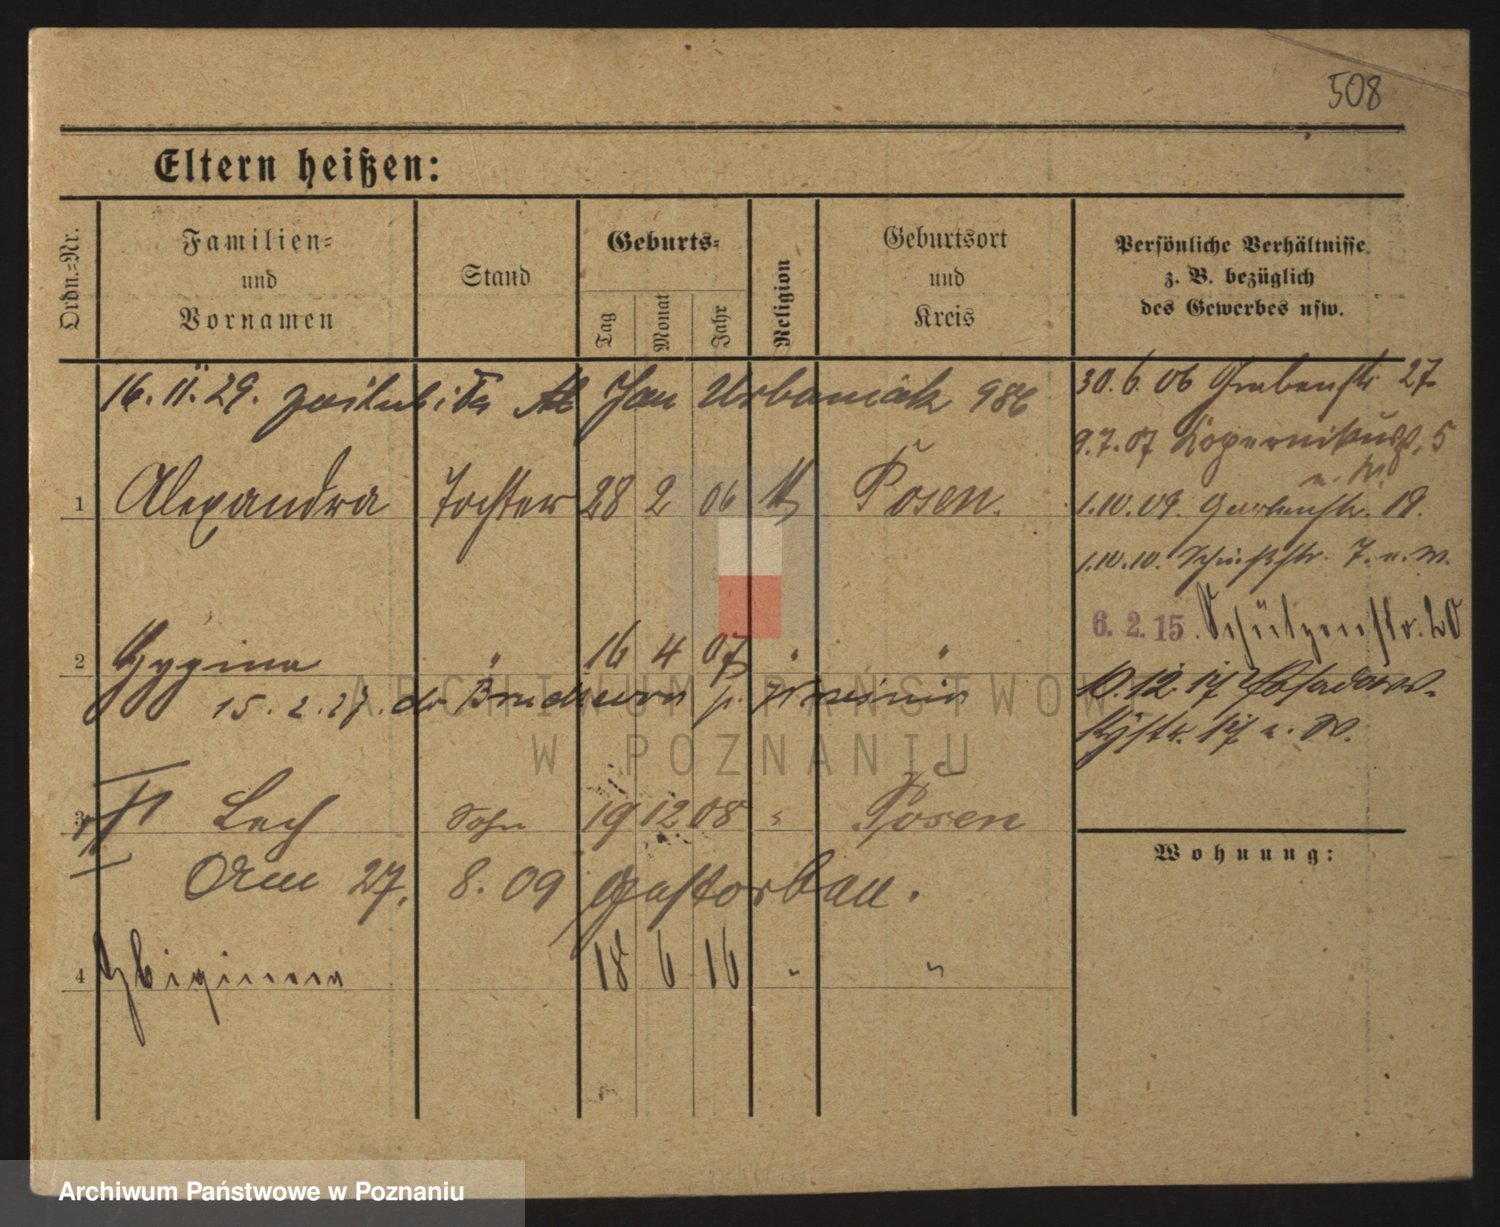 508
Eltern heißen:
Ordn.=Nr.
Familien= und Vornamen
Stand
Geburts=
Tag
Monat
Jahr
Religion
Geburtsort und Kreis
Persönliche Verhältnisse z. B. bezüglich des Gewerbes usw.
16. 11. 29. Jan Urbaniak 986
1 Alexandra Tochter 28 2 06 K Posen.
2 16 4 07 " "
15. 2. 27. do p. Września
3 Lech Sohn 19 12 08 " Posen
Am 27. 8. 09 gestorben.
4 18 6 16 " "
30. 6. 06 Grabenstr. 27.
9. 7. 07 5
1. 10. 09. Gartenstr. 19.
1. 10. 10. Schießstr. 7. u. W.
6. 2. 15. Schützenstr. 20
10. 12. 17
17 u. W.
Wohnung:
ARCHIWUM PAŃSTWOWE
W POZNANIU
Archiwum Państwowe w Poznaniu